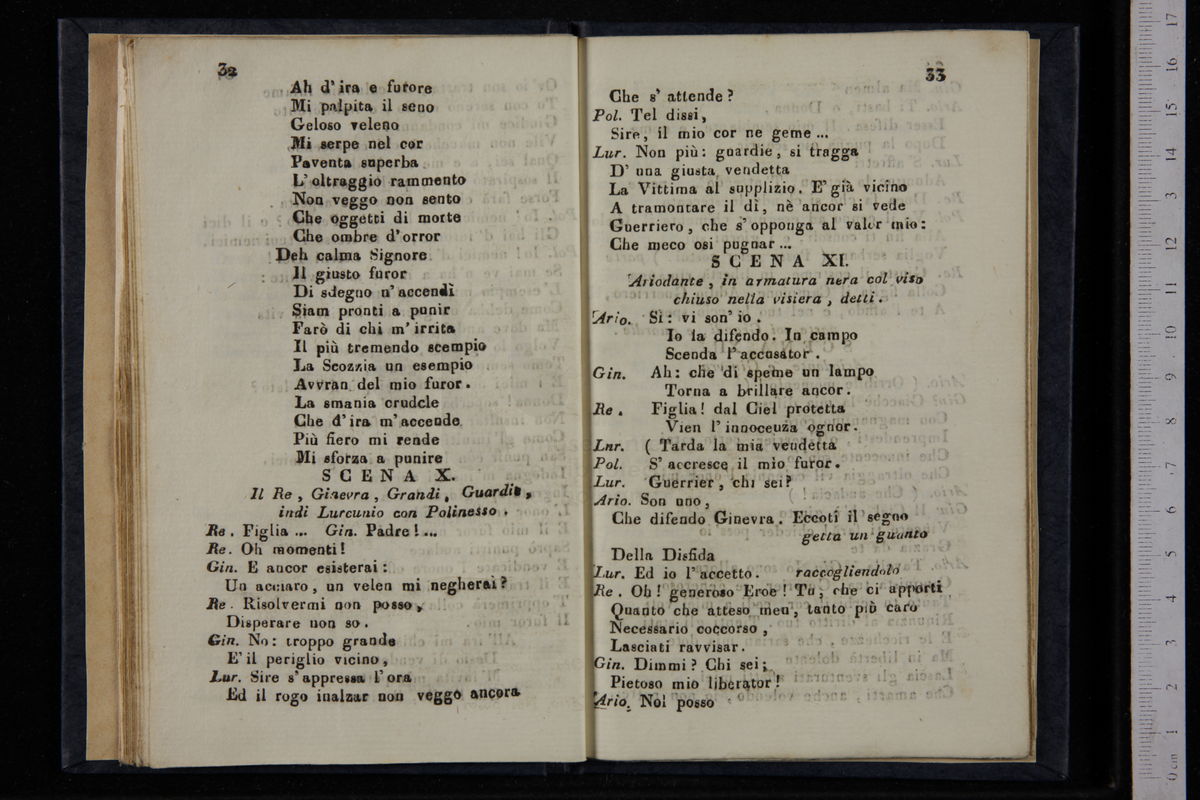 32
Ah d' ira e furore
Mi palpita il seno
Geloso veleno
Mi serpe nel cor
Paventa superba
L' oltraggio rammento
Non veggo non sento
Che oggetti di morte
Che ombre d' orror
Deh calma Signore
Il giusto furor
Di sdegno n' accendi
Siam pronti a punir
Farò di chi m' irrita
Il più tremendo scempio
La Scozzia un esempio
Avvran del mio furor.
La smania crudele
Che d' ira m' accende
Più fiero mi rende
Mi sforza a punire
SCENA X.
Il Re, Ginevra, Grandi, Guardie,
indi Lurcunio con Polinesso.
Re. Figlia ... Gin. Padre! ...
Re. Oh momenti!
Gin. E ancor esisterai:
Un acciaro, un velen mi negherai?
Re. Risolvermi non posso,
Disperare non so.
Gin. No: troppo grande
E' il periglio vicino,
Lur. Sire s' appressa l' ora
Ed il rogo inalzar non veggo ancora
33
Che s' attende?
Pol. Tel dissi,
Sire, il mio cor ne geme ...
Lur. Non più: guardie, si tragga
D' una giusta vendetta
La Vittima al supplizio. E' già vicino
A tramontare il dì, nè ancor si vede
Guerriero, che s' opponga al valor mio:
Che meco osi pugnar ...
SCENA XI.
Ariodante, in armatura nera col viso
chiuso nella visiera, detti.
Ario. Sì: vi son' io.
Io la difendo. In campo
Scenda l' accusator.
Gin. Ah: che di speme un lampo
Torna a brillare ancor.
Re. Figlia! dal Ciel protetta
Vien l' innocenza ognor.
Lnr. ( Tarda la mia vendetta
Pol. S' accresce il mio furor.
Lur. Guerrier, chi sei?
Ario. Son uno,
Che difendo Ginevra. Eccoti il segno
getta un guanto
Della Disfida
Lur. Ed io l' accetto. raccogliendolo
Re. Oh! generoso Eroe! Tu, che ci apporti
Quanto che atteso men, tanto più caro
Necessario coccorso,
Lasciati ravvisar.
Gin. Dimmi? Chi sei;
Pietoso mio liberator!
Ario. Nol posso